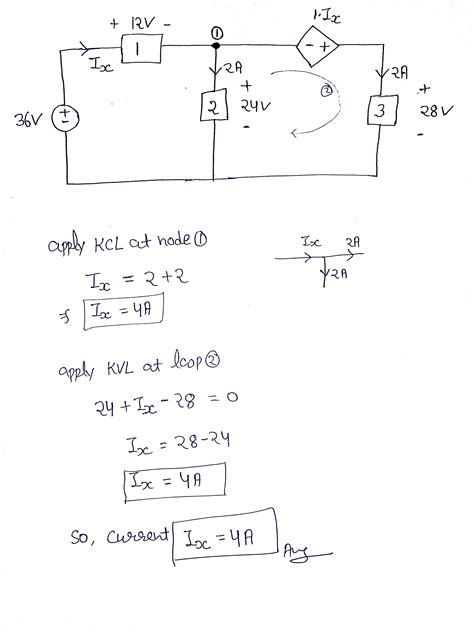 + 12V -
1
①
1.Ix
- +
Ix
2A
2A
36V
+
-
2
+
24V
-
②
3
+
28V
-
apply KCL at node ①
Ix = 2+2
⇒ Ix = 4A
Ix 2A
2A
apply KVL at loop ②
24 + Ix - 28 = 0
Ix = 28-24
Ix = 4A
So, Current Ix = 4A
Ans